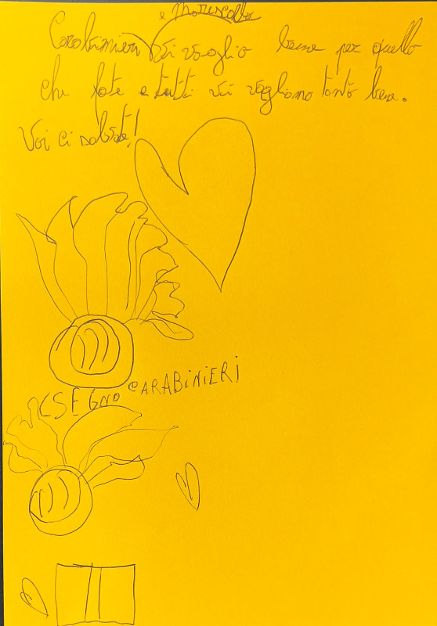 e Marescialla
Carabinieri vi voglio bene per quello
che fate e tutti vi vogliono tanto bene.
Voi ci salvate!
DISEGNO CARABINIERI